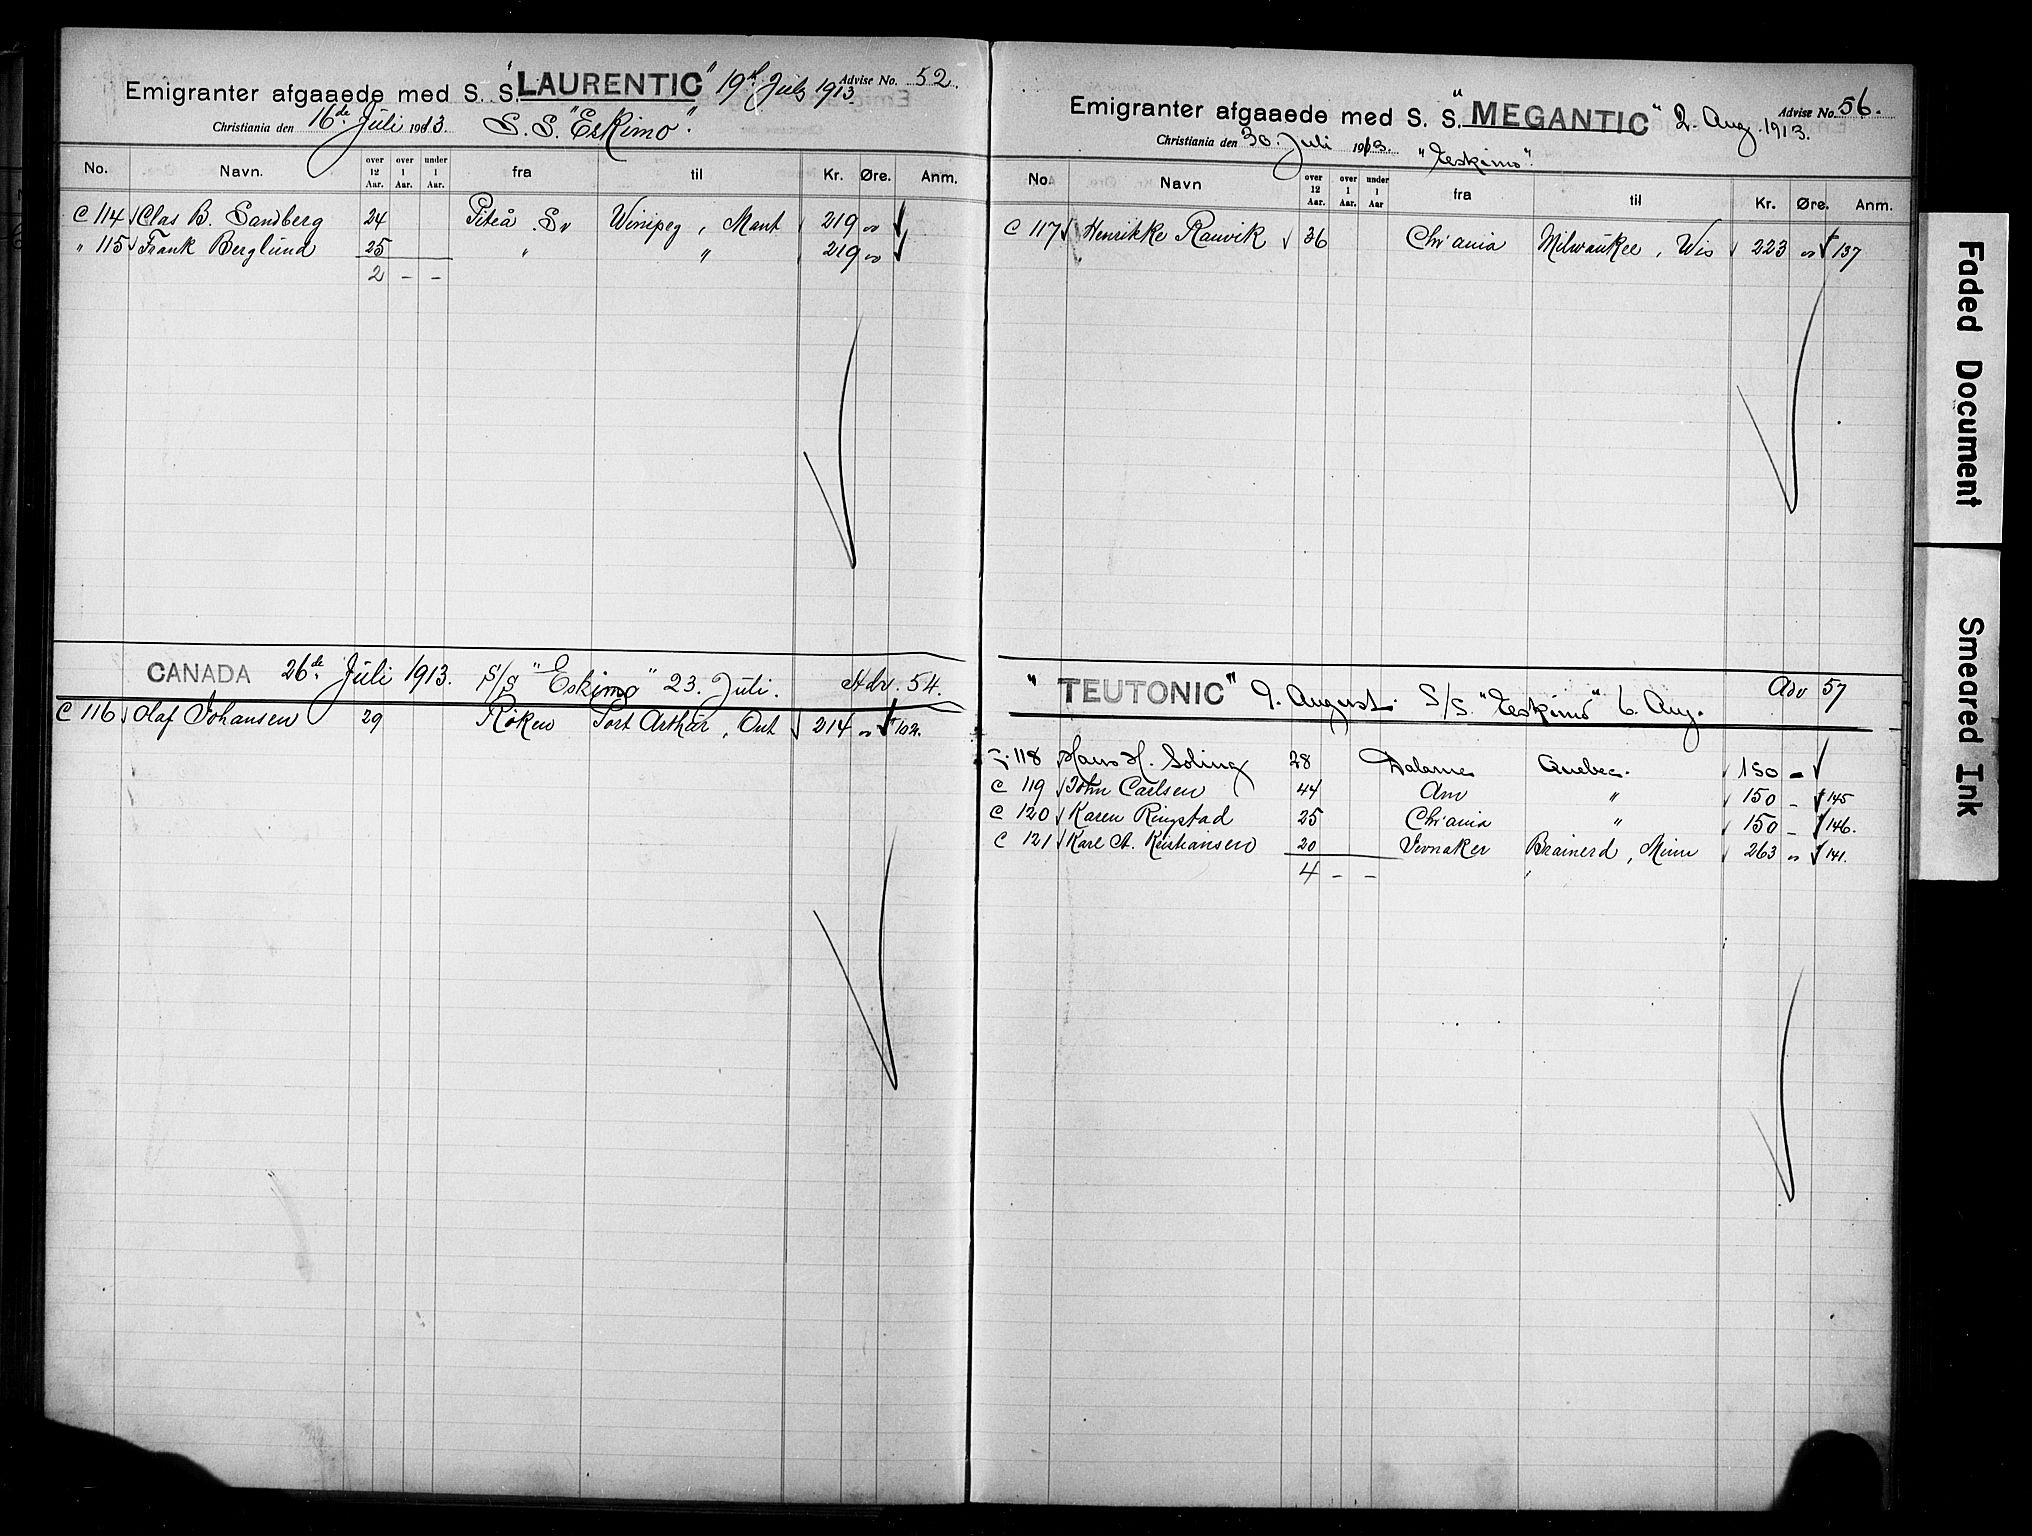 Emigranter afgaaede med S. S. "LAURENTIC" 19d July 1913. Advise No. 52
Christiania den 16de Juli 1913. S. S. "Eskimo".
No. Navn. over 12 Aar. over 1 Aar. under 1 Aar. fra til Kr. Øre. Anm.
C 114 Clas B. Sandberg 24 Piteå Sv Winipeg, Mant 219 00
" 115 Frank Berglund 25 " " 219 00
2 - -
CANADA 26de Juli 1913. S/S "Eskimo" 23. Juli. Adv. 54.
C 116 Olaf Johansen 29 Röken Port Arthur, Ont 214 00 102.
Emigranter afgaaede med S. S. "MEGANTIC" 2. Aug. 1913. Advise No. 56.
Christiania den 30. Juli 1913. "Eskimo".
No. Navn over 12 Aar. over 1 Aar. under 1 Aar fra til Kr. Øre. Anm.
C 117 Henrikke Rauvik 36 Chr'ania Milwaukee, Wis 223 00 137
"TEUTONIC" 9. August. S/S. "Eskimo" 6. Aug. Adv 57
118 Hans H. Soling 28 Dalarne Quebec. 150 -
C 119 John Carlsen 44 Am " 150 - 145
C 120 Karen Ringstad 25 Chr'ania " 150 - 146.
C 121 Karl A. Kristiansen 20 Jevnaker Brainerd, Minn 263 00 141.
4 - -
Faded Document
Smeared Ink